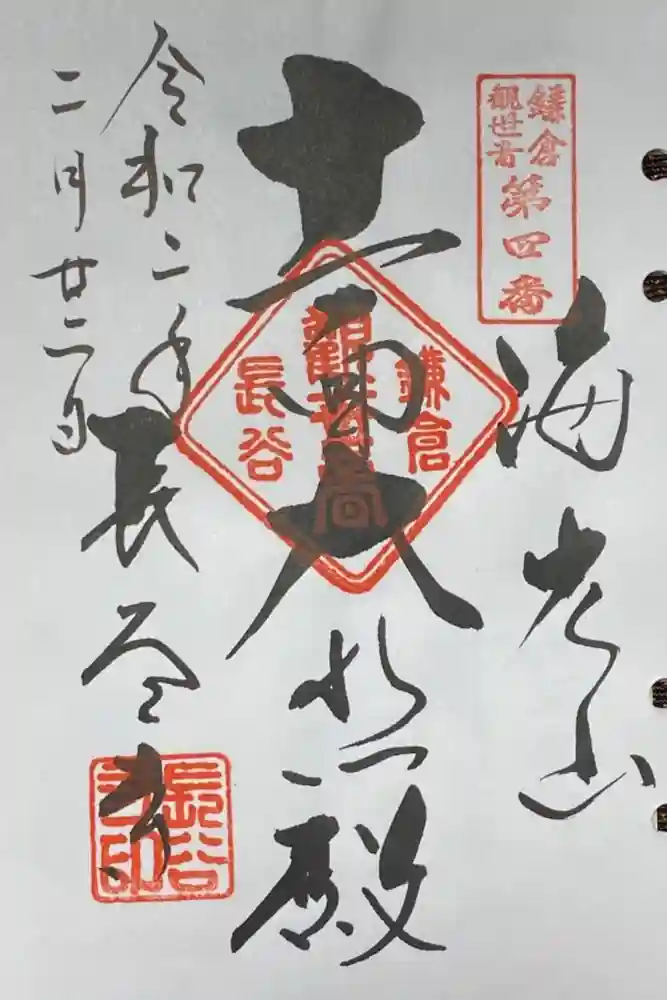 鎌倉
観世音
第四番
海光山
十一面大悲殿
鎌倉
長谷
令和二年
二月廿二日
長谷寺
長谷
寺印